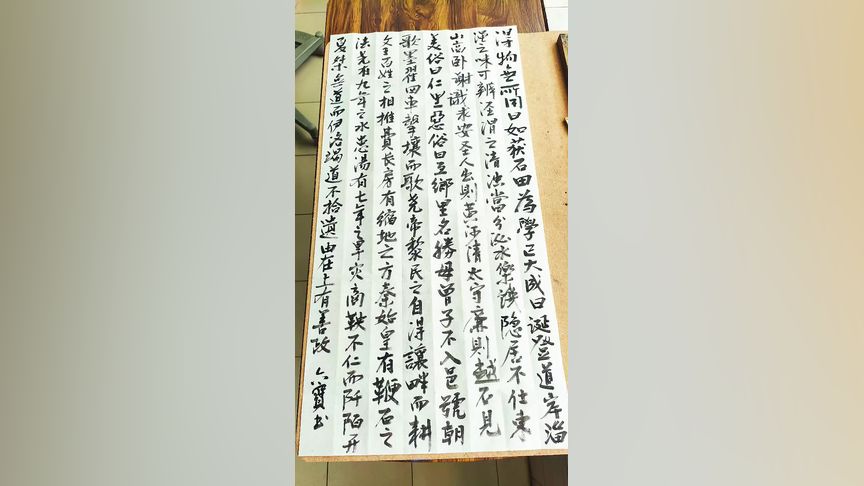 得物無所用曰如获石田為學已大成曰誕登道岸淄
渑之味可辨泾渭之清濁當分泌水樂饑隐居不仕東
山高卧謝職求安圣人出則黄河清太守廉則越石見
美俗曰仁里惡俗曰互鄉里名勝母曾子不入邑號朝
歌墨翟回車擊壤而歌尧帝黎民之自得讓畔而耕
文王百姓之相推費长房有縮地之方秦始皇有鞭石之
法尧有九年之水患湯有七年之旱灾商鞅不仁而阡陌开
夏桀無道而伊洛竭道不拾遺由在上有善政 六寶书